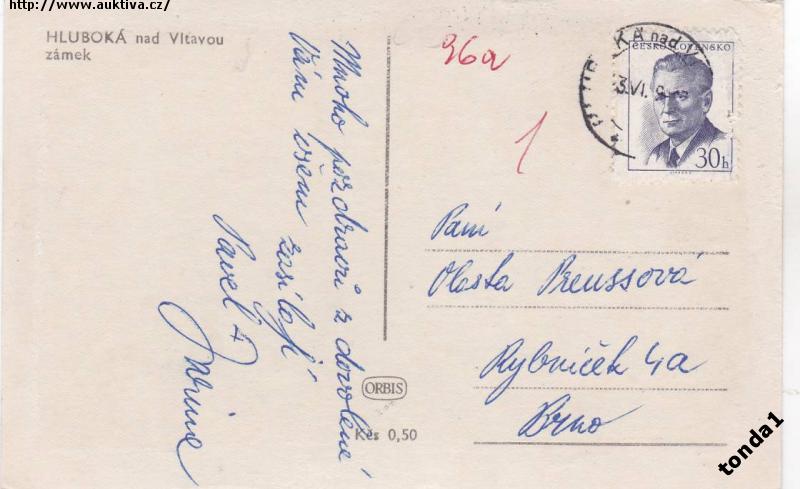 http://www.auktiva.cz/
HLUBOKÁ nad Vltavou
zámek
Mnoho pozdravů z dovolené
Vám všem zasílají
Pavel +
36a
1
KÁ nad V
3.VI.
ČESKOSLOVENSKO
30h
Paní
Vlasta Preussová
Rybníček 4a
Brno
ORBIS
Kčs 0,50
tonda1